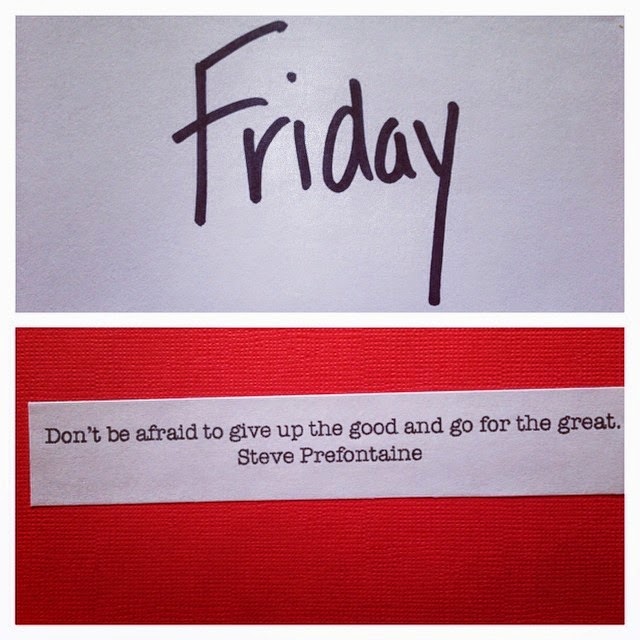 Friday
Don't be afraid to give up the good and go for the great.
Steve Prefontaine